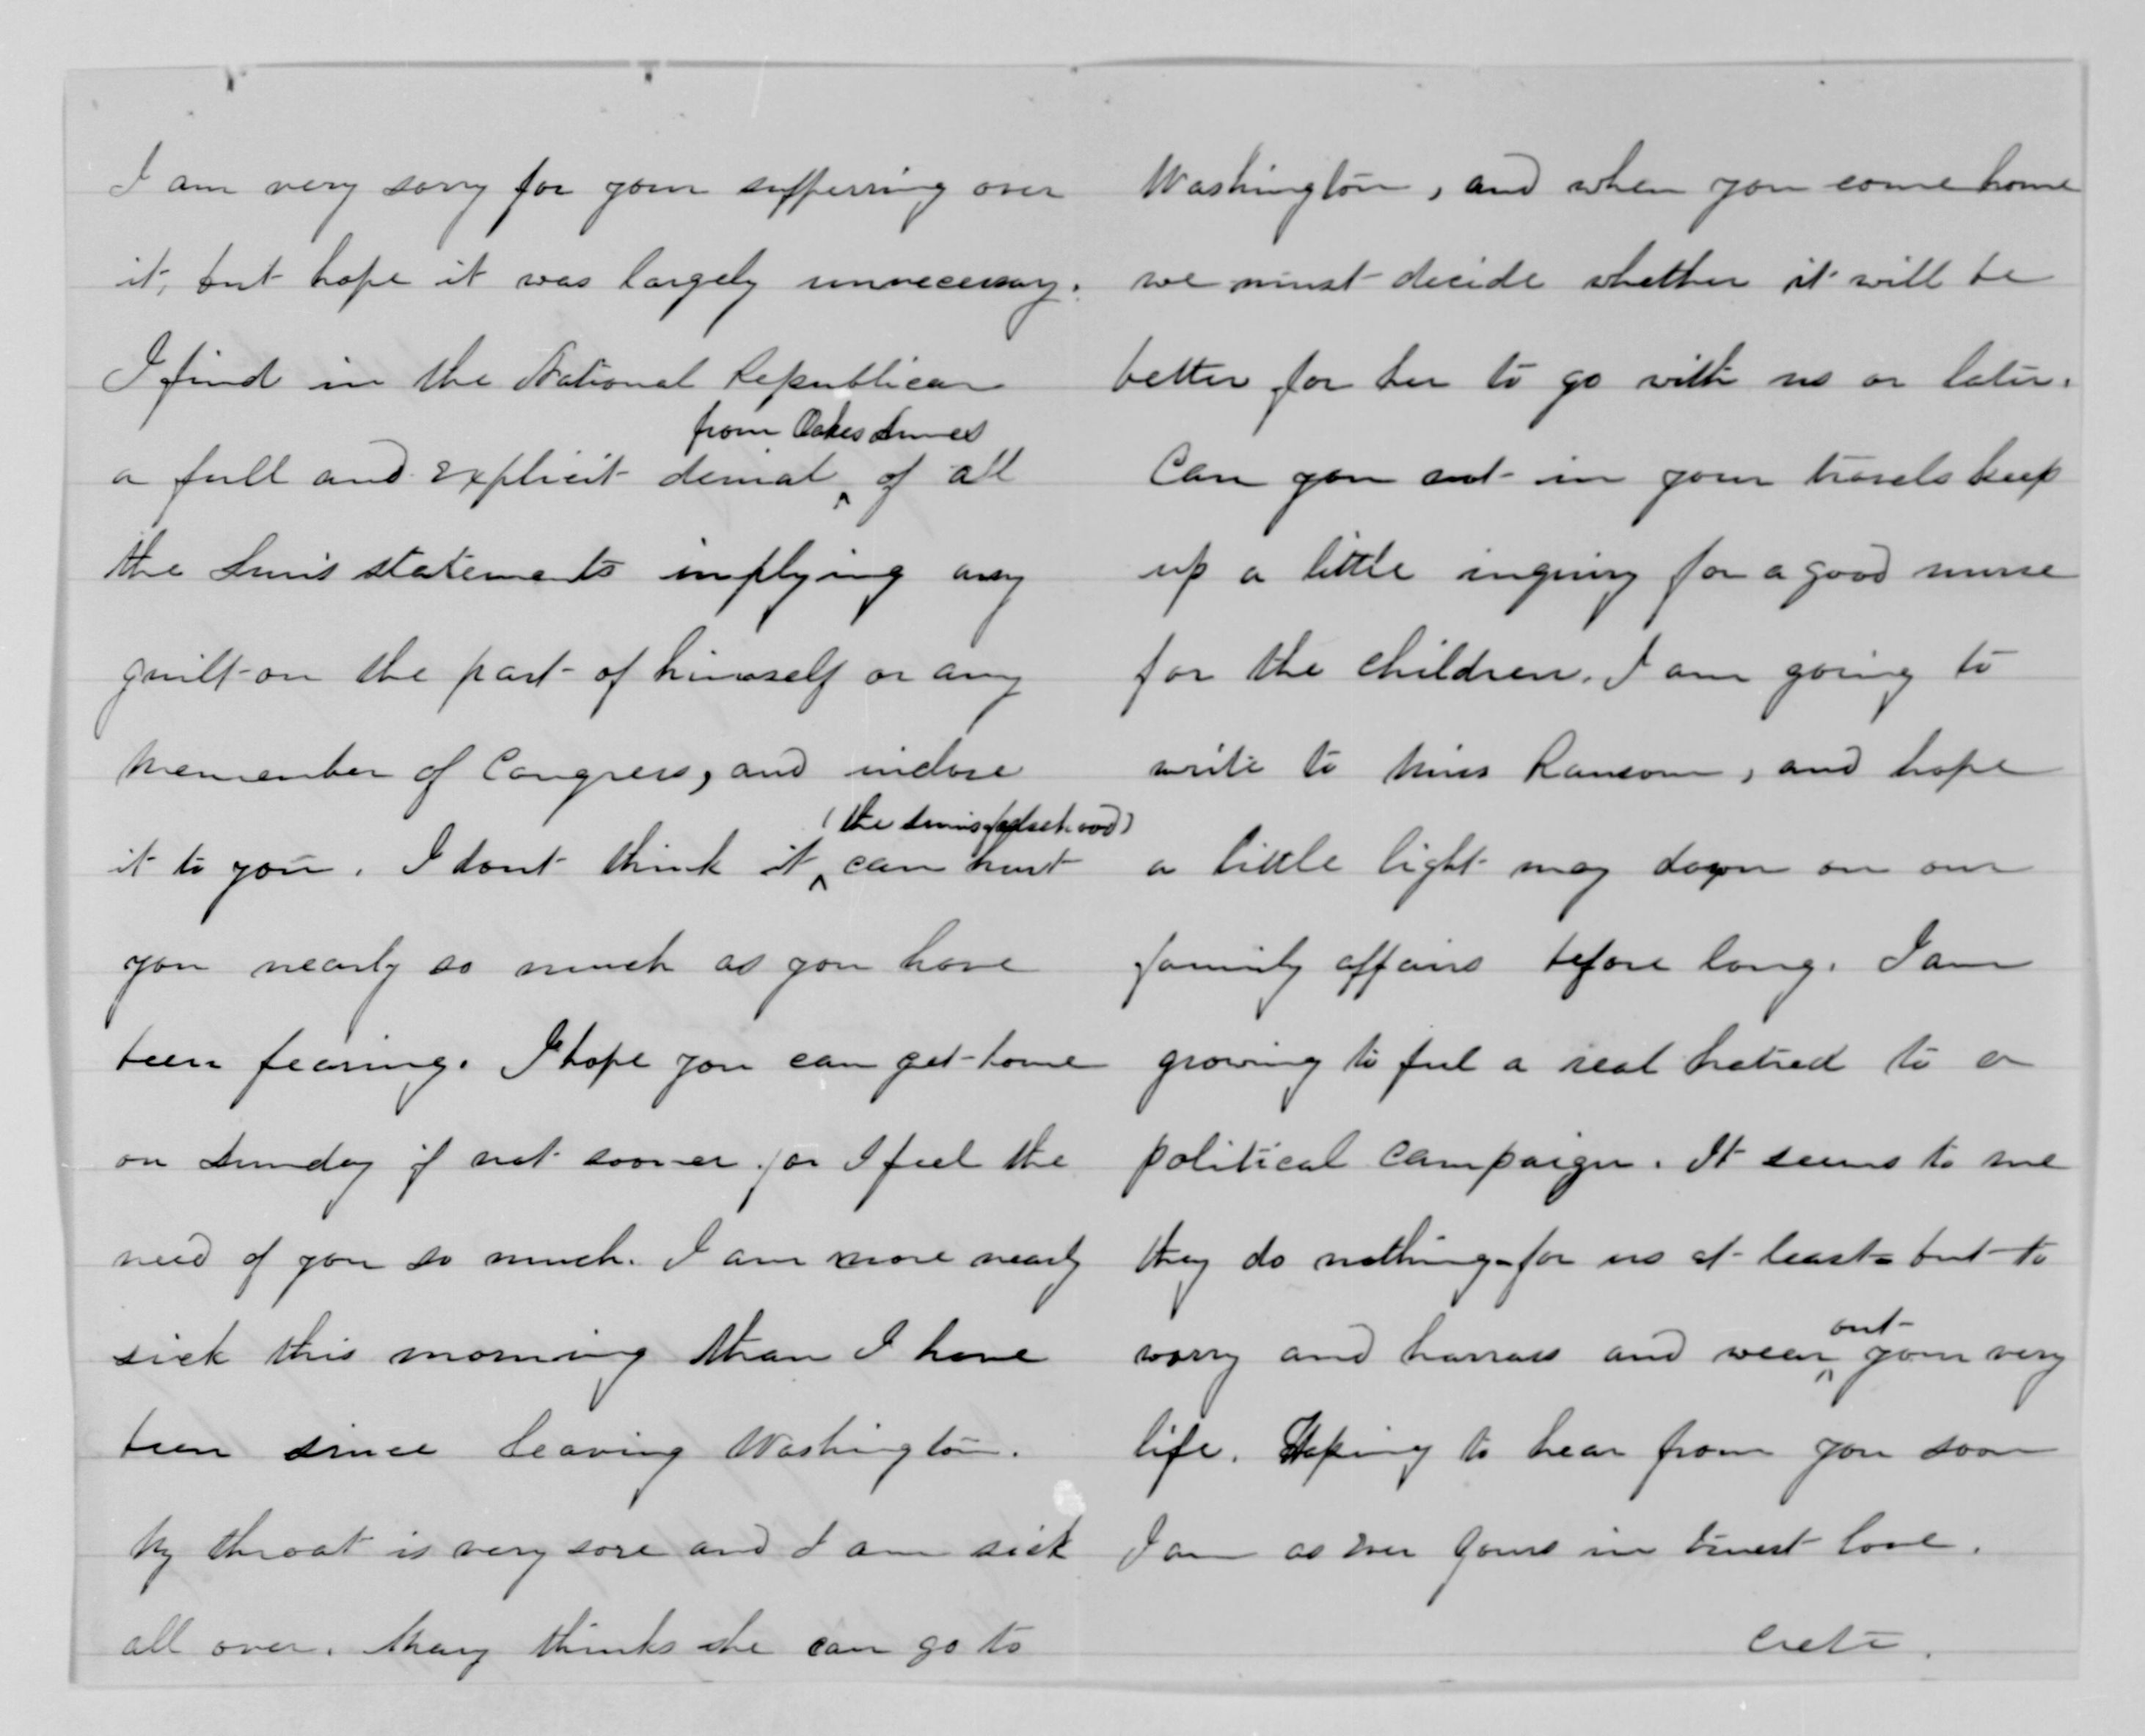 I am very sorry for your sufferring over
it, but hope it was largely unnecessary.
I find in the National Republican
from Oakes Ames
a full and explicit denial ^ of all
the Suns statements implying any
guilt on the part of himself or any
memember of Congress, and inclose
(the Suns falsehood)
it to you. I dont think it ^ can hurt
you nearly so much as you have
been fearing. I hope you can get home
on Sunday if not sooner for I feel the
need of you so much. I am more nearly
sick this morning than I have
been since leaving Washington.
My throat is very sore and I am sick
all over. Mary thinks she can go to
Washington, and when you come home
we must decide whether it will be
better for her to go with us or later.
Can you not in your travels keep
up a little inquiry for a good nurse
for the children. I am going to
write to Miss Ransom, and hope
a little light may dawn on our
family affairs before long. I am
growing to feel a real hatred to a
political campaign. It seems to me
they do nothing - for us at least - but to
out
worry and harrass and wear ^ your very
life. Hoping to hear from you soon
I am as ever yours in truest love.
Crete.